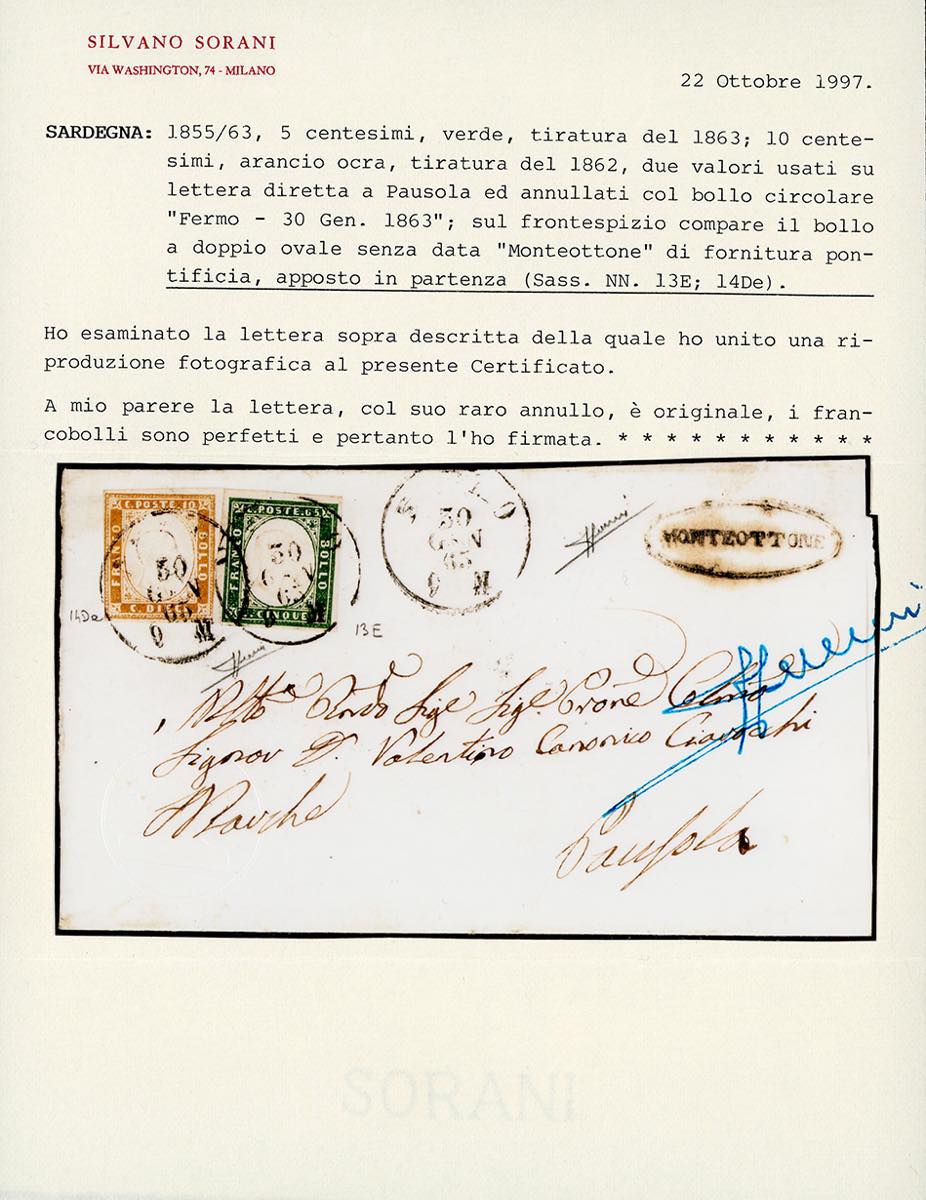 SILVANO SORANI
VIA WASHINGTON, 74 - MILANO
22 Ottobre 1997.
SARDEGNA: 1855/63, 5 centesimi, verde, tiratura del 1863; 10 cente-
simi, arancio ocra, tiratura del 1862, due valori usati su
lettera diretta a Pausola ed annullati col bollo circolare
"Fermo - 30 Gen. 1863"; sul frontespizio compare il bollo
a doppio ovale senza data "Monteottone" di fornitura pon-
tificia, apposto in partenza (Sass. NN. 13E; 14De).
Ho esaminato la lettera sopra descritta della quale ho unito una ri-
produzione fotografica al presente Certificato.
A mio parere la lettera, col suo raro annullo, è originale, i fran-
cobolli sono perfetti e pertanto l'ho firmata. * * * * * * * * * * *
C. POSTE. 10
FRANCO
BOLLO
C. DIECI
C. POSTE. C5
FRANCO
BOLLO
CINQUE
30
GEN
63
9 M
30
63
M
30
GEN
63
9 M
MONTEOTTONE
14De
13E
Sigr
Signor D. Valentino Canonico
Marche
Pausola
SORANI